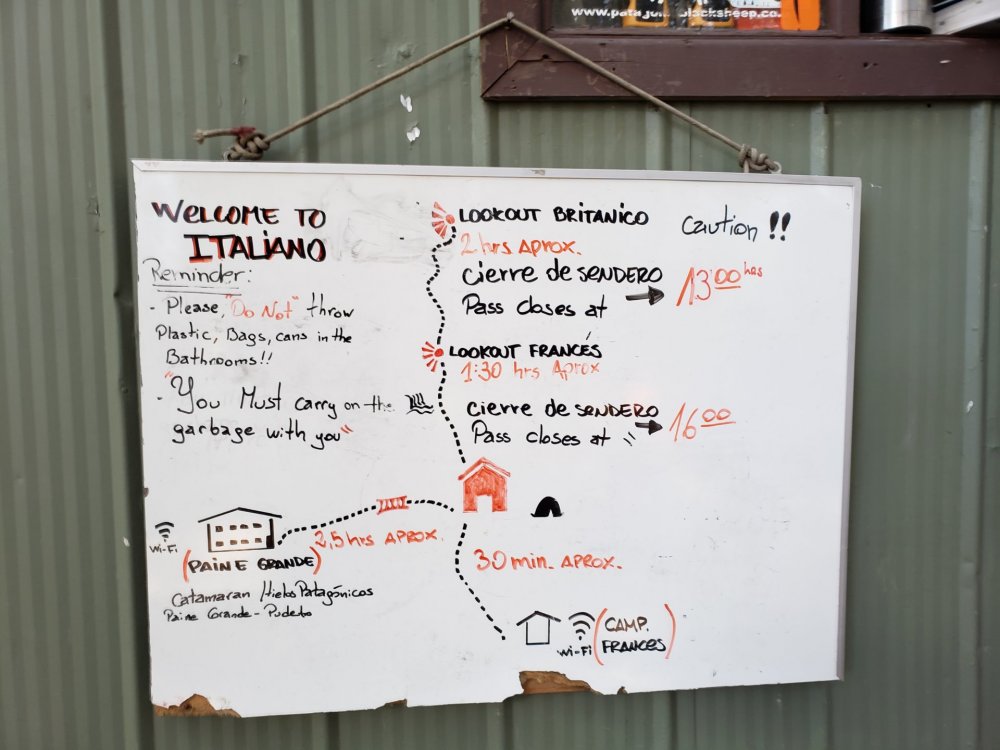 WELCOME TO
ITALIANO
Reminder:
- Please, "Do Not" throw
Plastic, Bags, cans in the
Bathrooms!!
- "You Must carry on the
garbage with you"
LOOKOUT BRITANICO
2 hrs APROX.
cierre de SENDERO
Pass closes at → 13:00 hrs
Caution !!
LOOKOUT FRANCÉS
1:30 hrs Aprox
cierre de SENDERO
Pass closes at " → 16 00
Wi-Fi
(PAINE GRANDE)
2,5 hrs APROX.
Catamaran Hielos Patagónicos
Paine Grande - Pudeto
30 min. APROX.
Wi-Fi
(CAMP.
FRANCES)